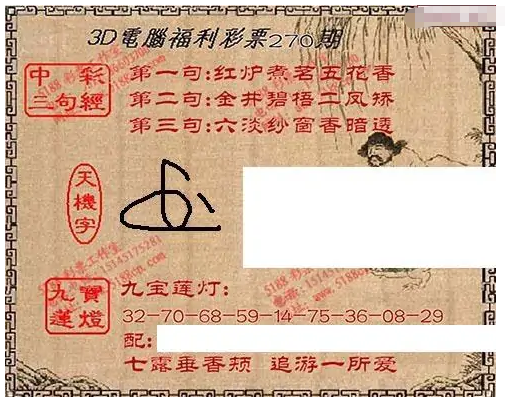 3D電腦福利彩票270期
中彩
三句經
第一句:红炉煮茗五花香
第二句:金井碧梧二凤矫
第三句:六淡纱窗香暗透
天機字
九寶
蓮燈
九宝莲灯:
32-70-68-59-14-75-36-08-29
配:
七露垂香颊 追游一所爱